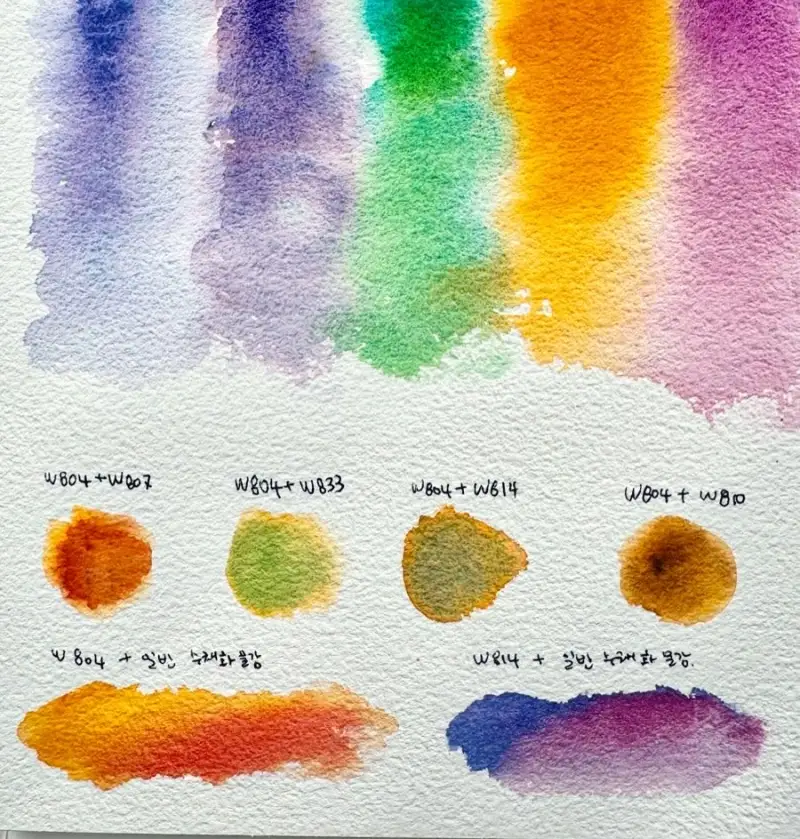 W804+W807
W804+W833
W804+W814
W804 + W810
W804 + 일반 수채화물감
W814 + 일반 수채화물감.